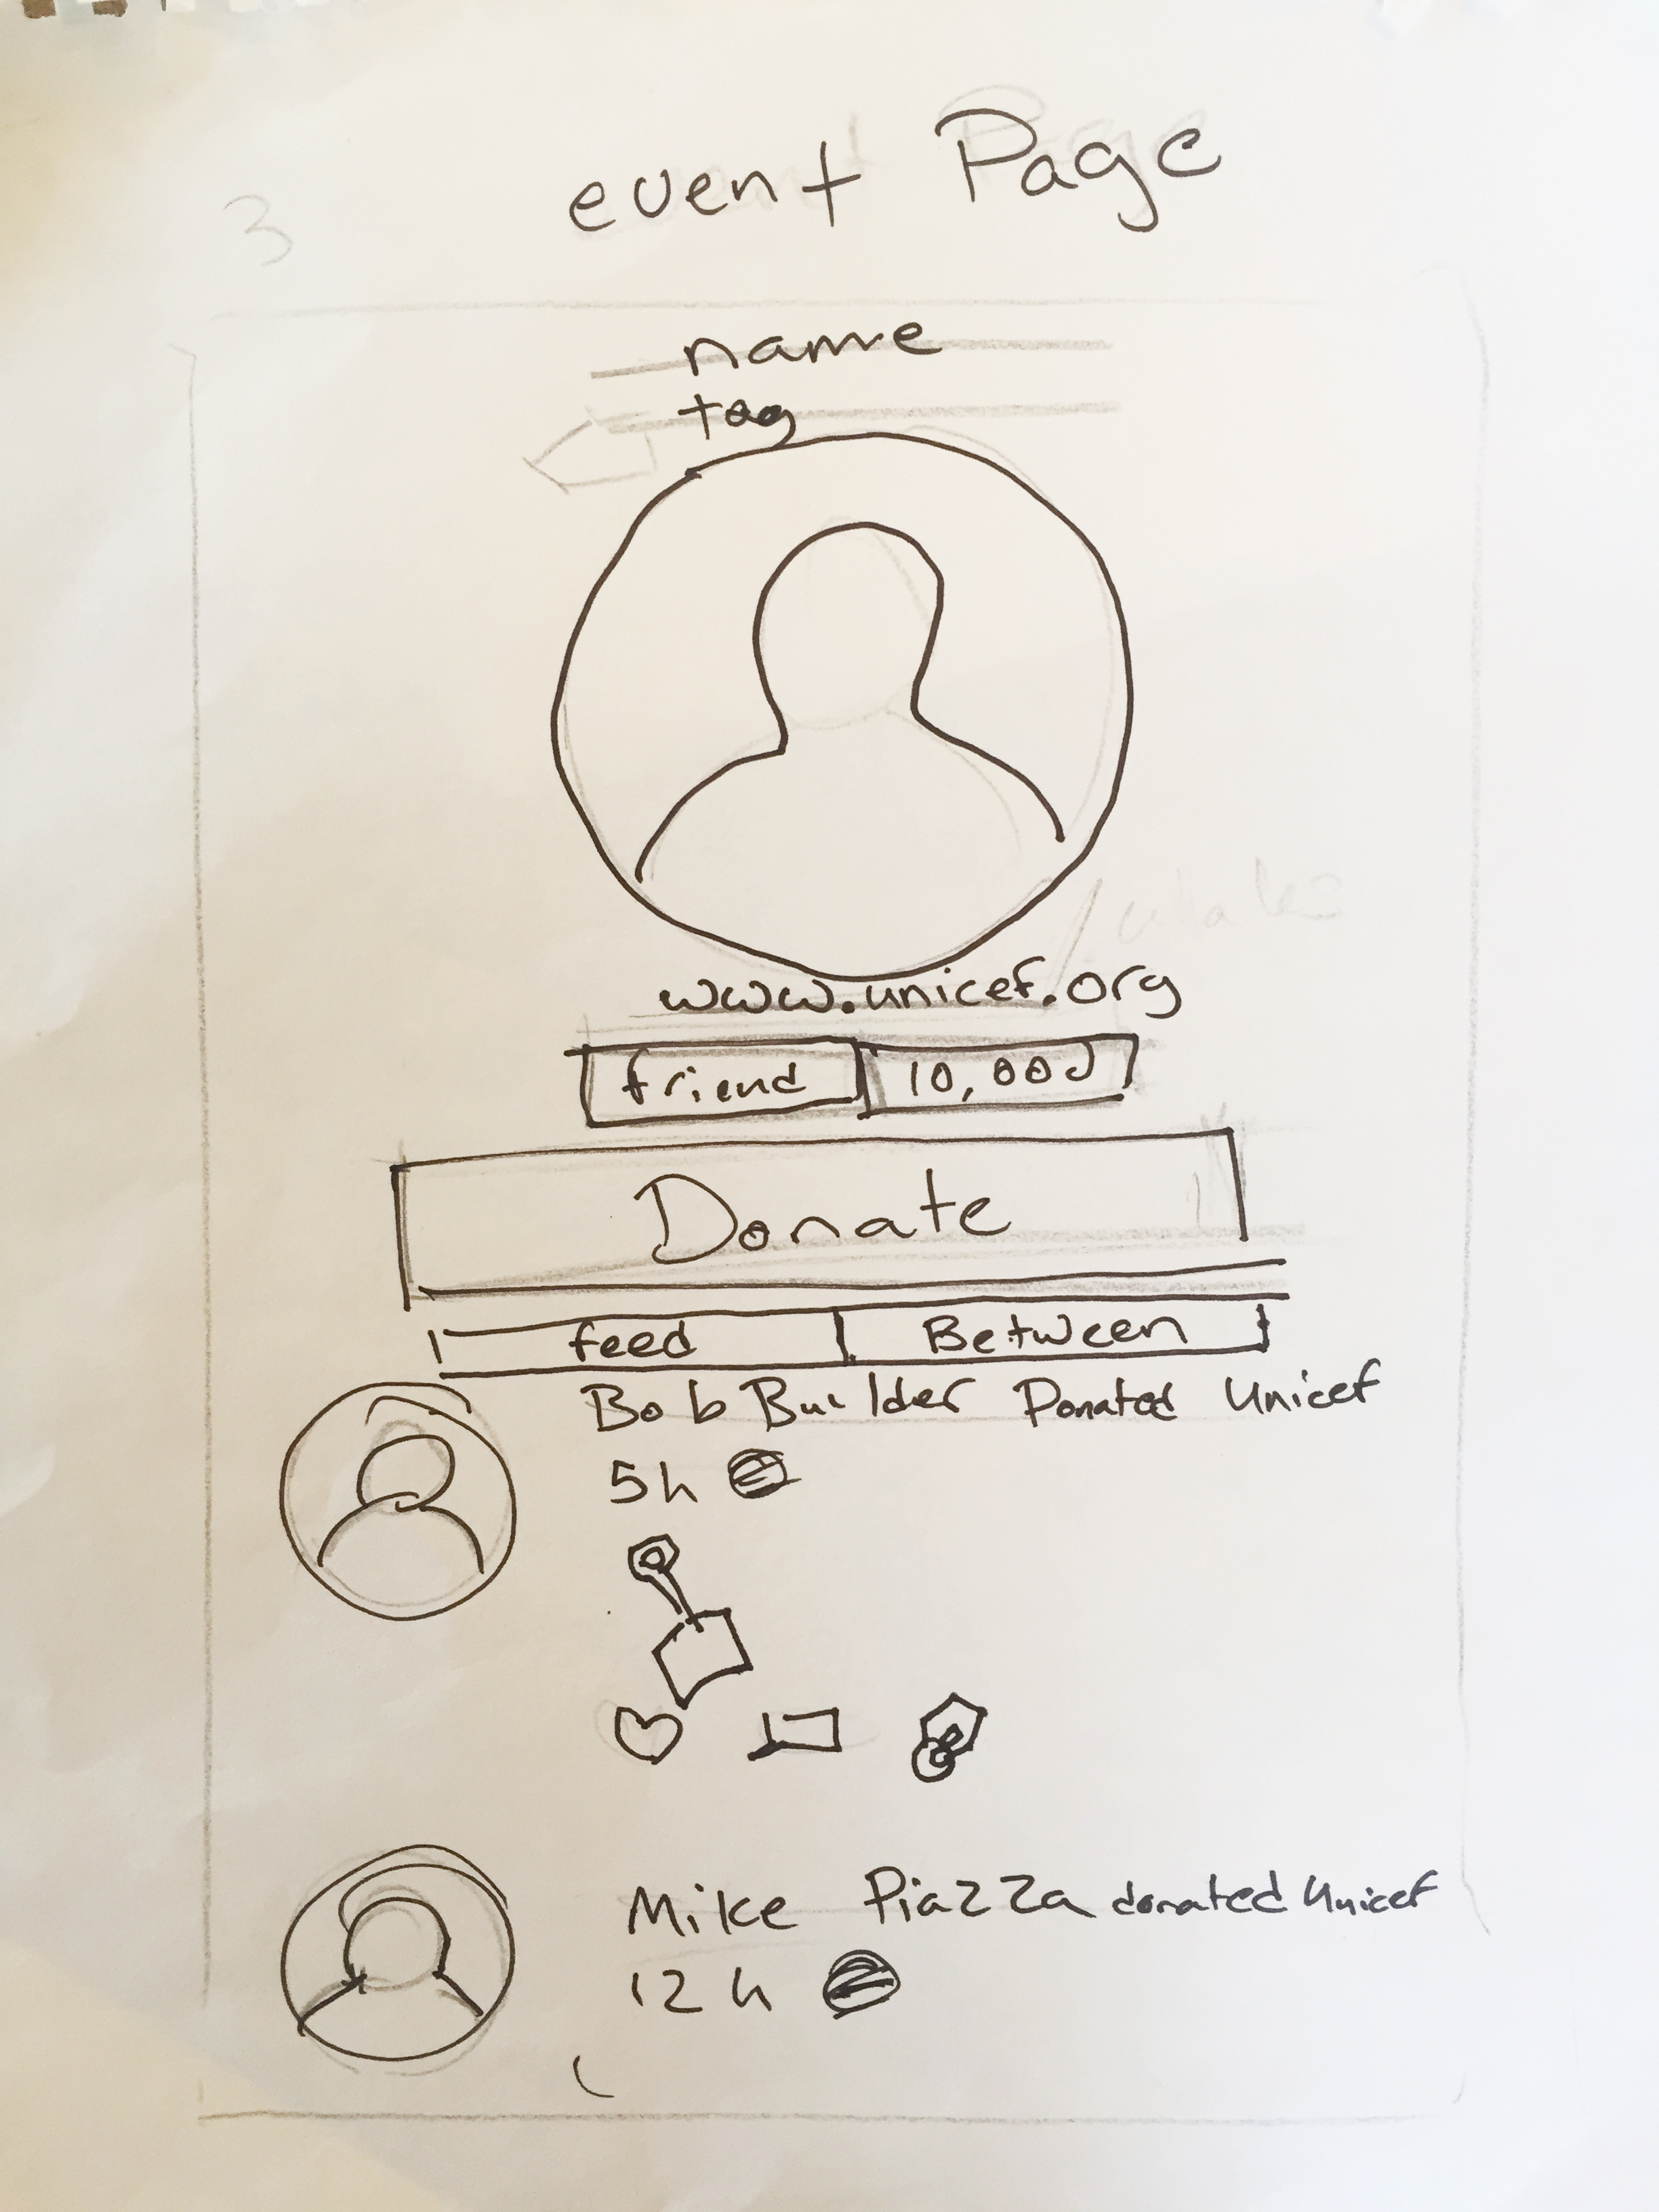 event Page
3
name
tag
www.unicef.org
friend 10,000
Donate
feed Between
Bob Builder Donated Unicef
5h
Mike Piazza donated Unicef
12h